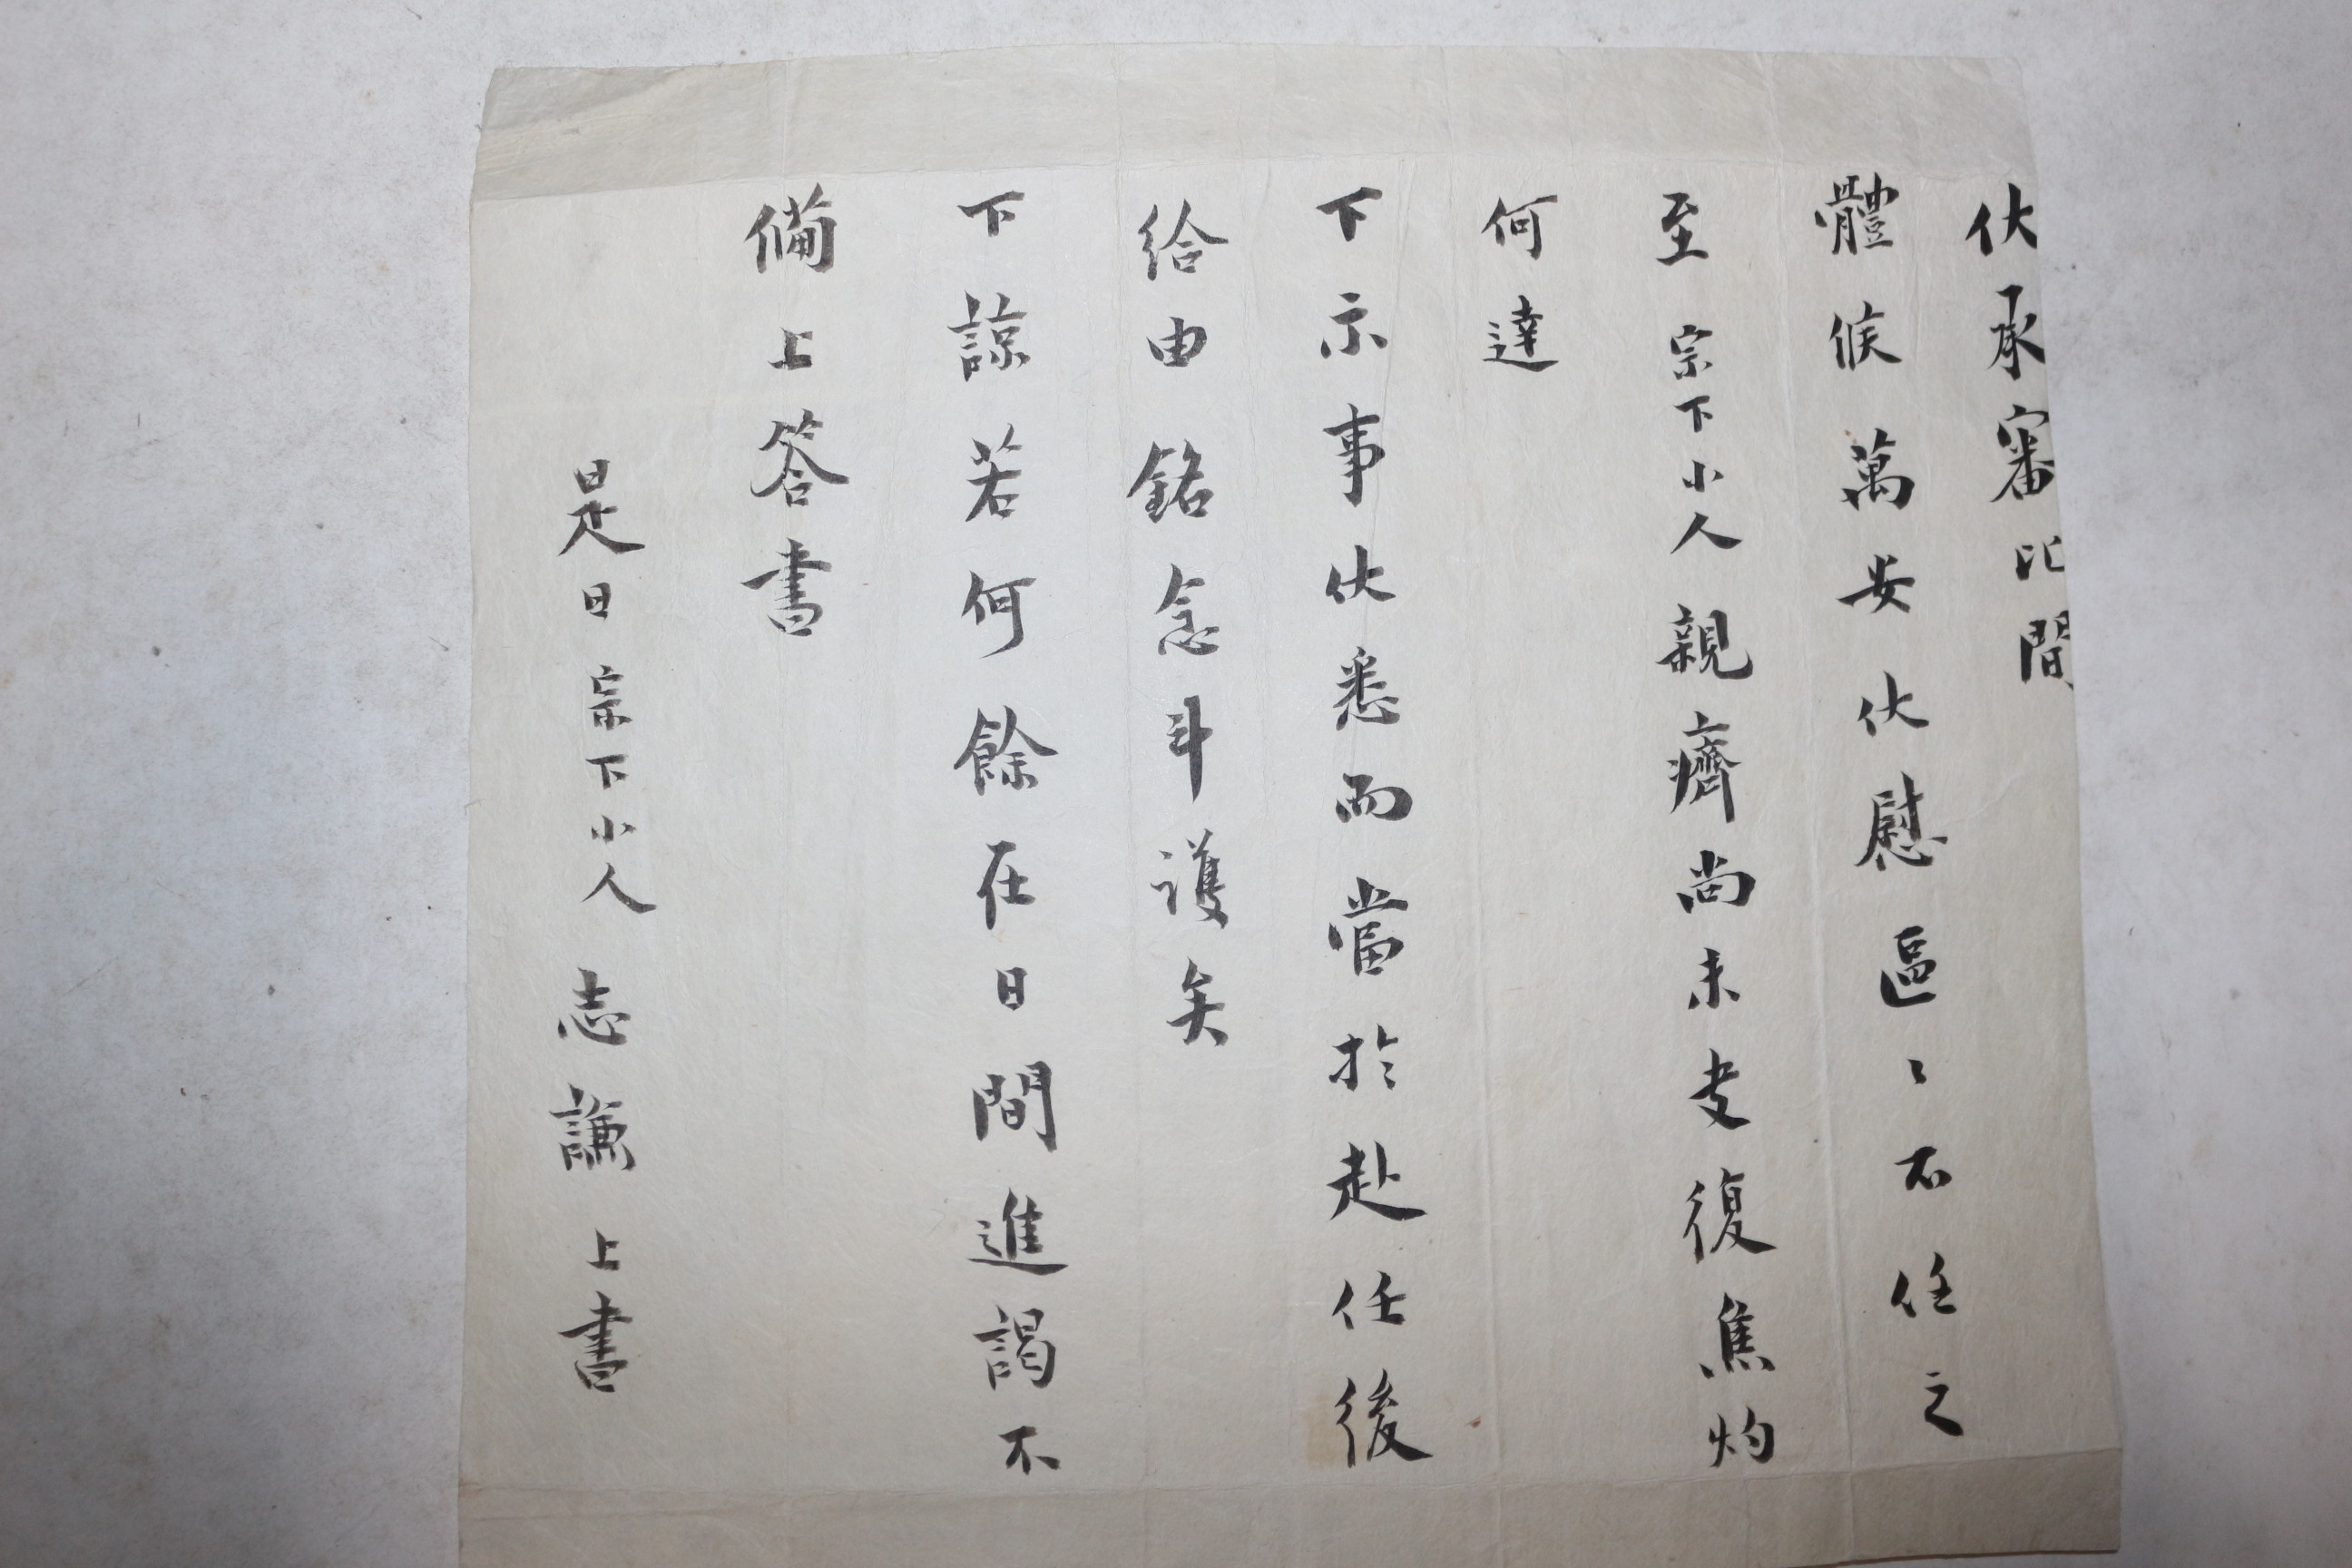 伏承審比間
體候萬安伏慰區〻不任之
至宗下小人親癠尚未夬復焦灼
何達
下示事伏悉而當於赴任後
給由銘念斗護矣
下諒若何餘在日間進謁不
備上答書
是日宗下小人志謙上書